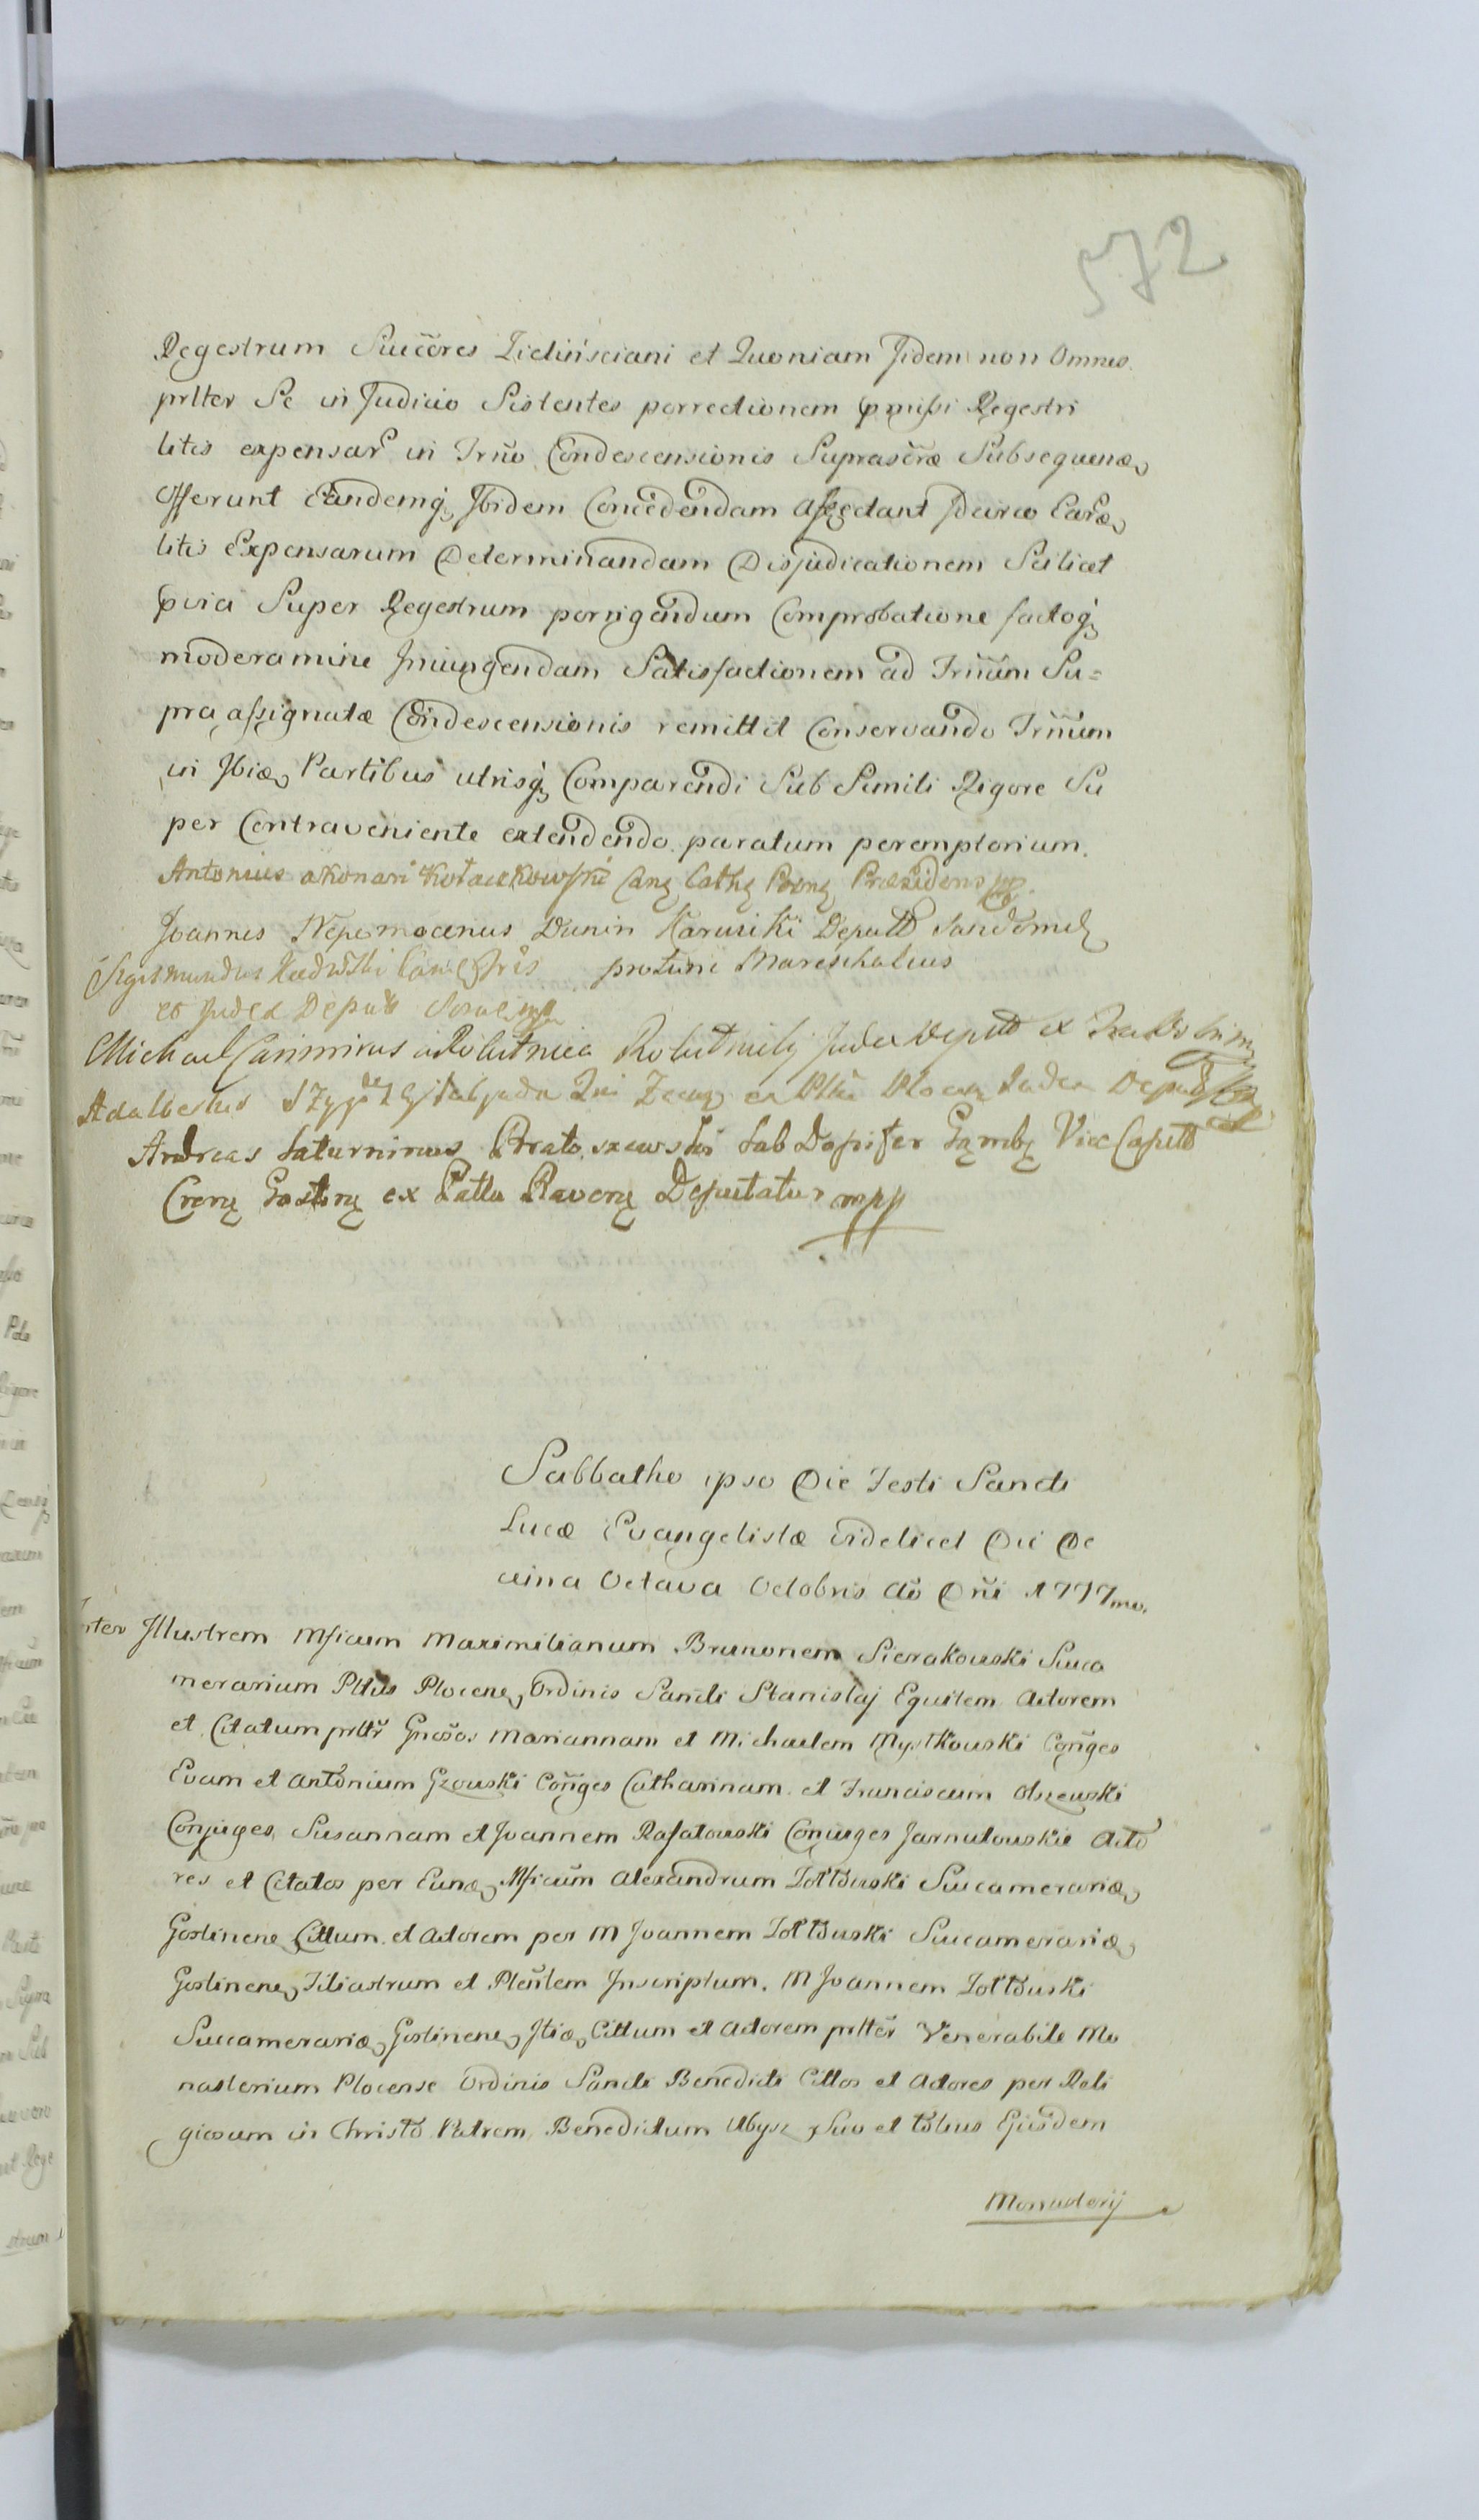 572
Regestrum Succ̃ores Zieliń̃sciani et Quoniam Jidem non Omnes
prlter Se in Judicio Sistentes porrectionem pmissi Regestri
litis expensar in Trño Condescensionis Suprascr̃æ Subsequenæ
Offerunt Eandemq Ibidem Concedendam Affectant Idcirco Earæ
litis Expensarum Determinandam Disjudicationem Scilicet
pvia Super Regestrum porrigendum Comprobatione factoq
moderamine Iniungendam Satisfactionem ad Trm̃um Su=
pra assignatæ Condescensionis remittit Conservando Trm̃um
in Ibiæ Partibus utrisq Comparendi Sub Simili Rigore Su
per Contraveniente extendendo paratum peremptorium.
Antonius Kołaczkowski Can Cath Præsidens
Joannes Nepomocenus Dunin Karwicki Deputt Sandom
Sigismundus protunc Mareschalcus
et Judex Deputt
Michael Casimirus Judex Deputt ex
Adalbertus Judex Deputt
Andreas Saturninus Sub Dapifer Gąmb Vice Capitt
Cren Gostin ex Pattu Raven Deputatus mpp
Sabbatho ipso Die Festi Sancti
Lucæ Evangelistæ Videlicet Die De
cima Octava Octobris Aõ Dñi 1777mo.
Inter Illustrem Mficum Maximilianum Brunonem Sierakowski Succa
merarium Pltus Plocene Ordinis Sancti Stanislaj Equitem Actorem
et Citatum prltr̃ Gnosos Mariannam et Michaelem Mystkowski Coñges
Evam et Antonium Gzowski Coñges Catharinam et Franciscum Olszewski
Conjuges Susannam et Joannem Rafałowski Coniuges Jarnutowskie Acto
res et Citatos per Eunæ Mficum Alexandrum Zołtowski Succamerariæ
Gostinene Cittum et Actorem per M Joannem Zołtowski Succamerariæ
Gostinene Filiastrum et Pleñtem Inscriptum. M Joannem Zołtowski
Succamerariæ Gostinene Itiæ Cittum et Actorem prltẽr Venerabile Mo
nasterium Plocense Ordinis Sancti Benedicti Cittos et Actores per Reli
giosum in Christo Patrem Benedictum Ubysz Suo et totius Ejusdem
Monasterij